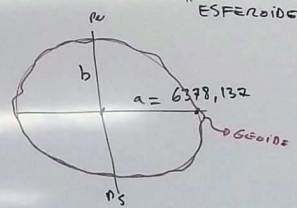 " ESFEROIDE
PN
b
a = 6378,137
GEOIDE
PS